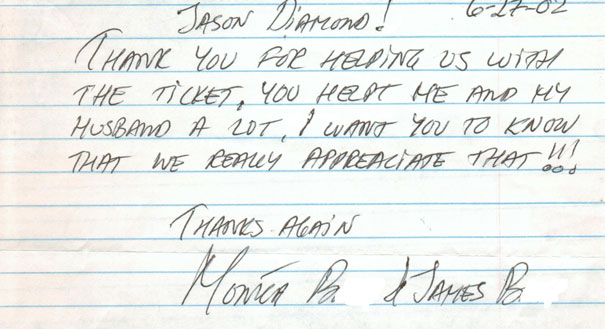 6-27-02
JASON DIAMOND!
THANK YOU FOR HELPING US WITH
THE TICKET, YOU HELPT ME AND MY
HUSBAND A LOT, I WANT YOU TO KNOW
THAT WE REALLY APPREACIATE THAT!!!
THANKS AGAIN
MONICA B. & JAMES B.